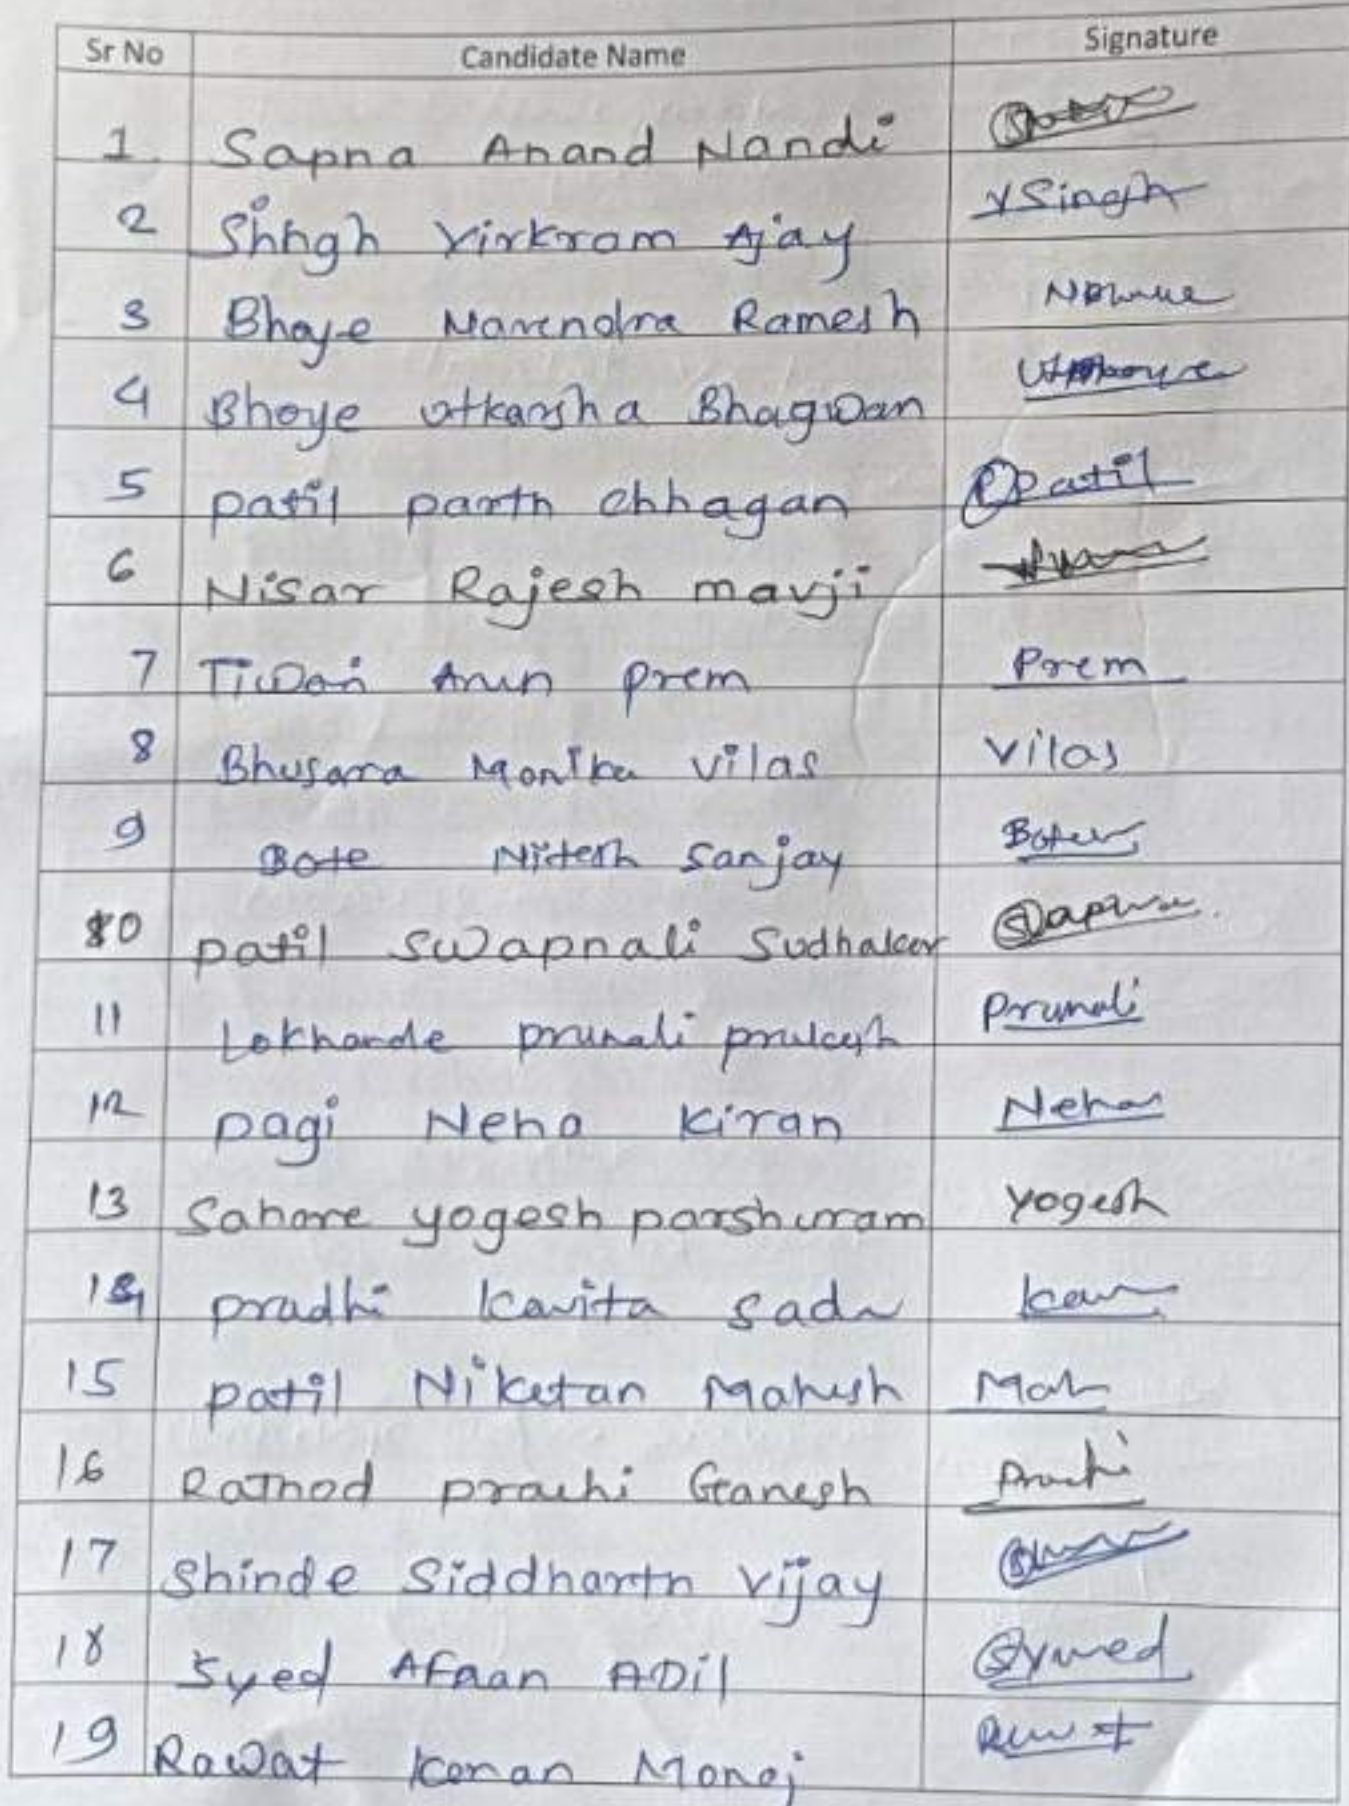 Sr No Candidate Name Signature
1 Sapna Anand Nandi
2 Shhgh Virkram Ajay VSingh
3 Bhoye Narendra Ramesh
4 Bhoye Utkarsha Bhagwan
5 patil parth chhagan PPatil
6 Nisar Rajesh mavji
7 Tiwari Arun prem Prem
8 Bhusara Monika vilas vilas
9 Bote Nitesh Sanjay
10 patil swapnali Sudhakar
11 Lokhande prunali prakash Prunali
12 pagi Neha Kiran Neha
13 Sahare yogesh parshuram yogesh
14 pradhi Kavita sadu
15 patil Niketan Mahesh
16 Rathod prachi Ganesh Prachi
17 Shinde Siddharth Vijay
18 Syed Afaan ADil
19 Rawat Karan Manoj